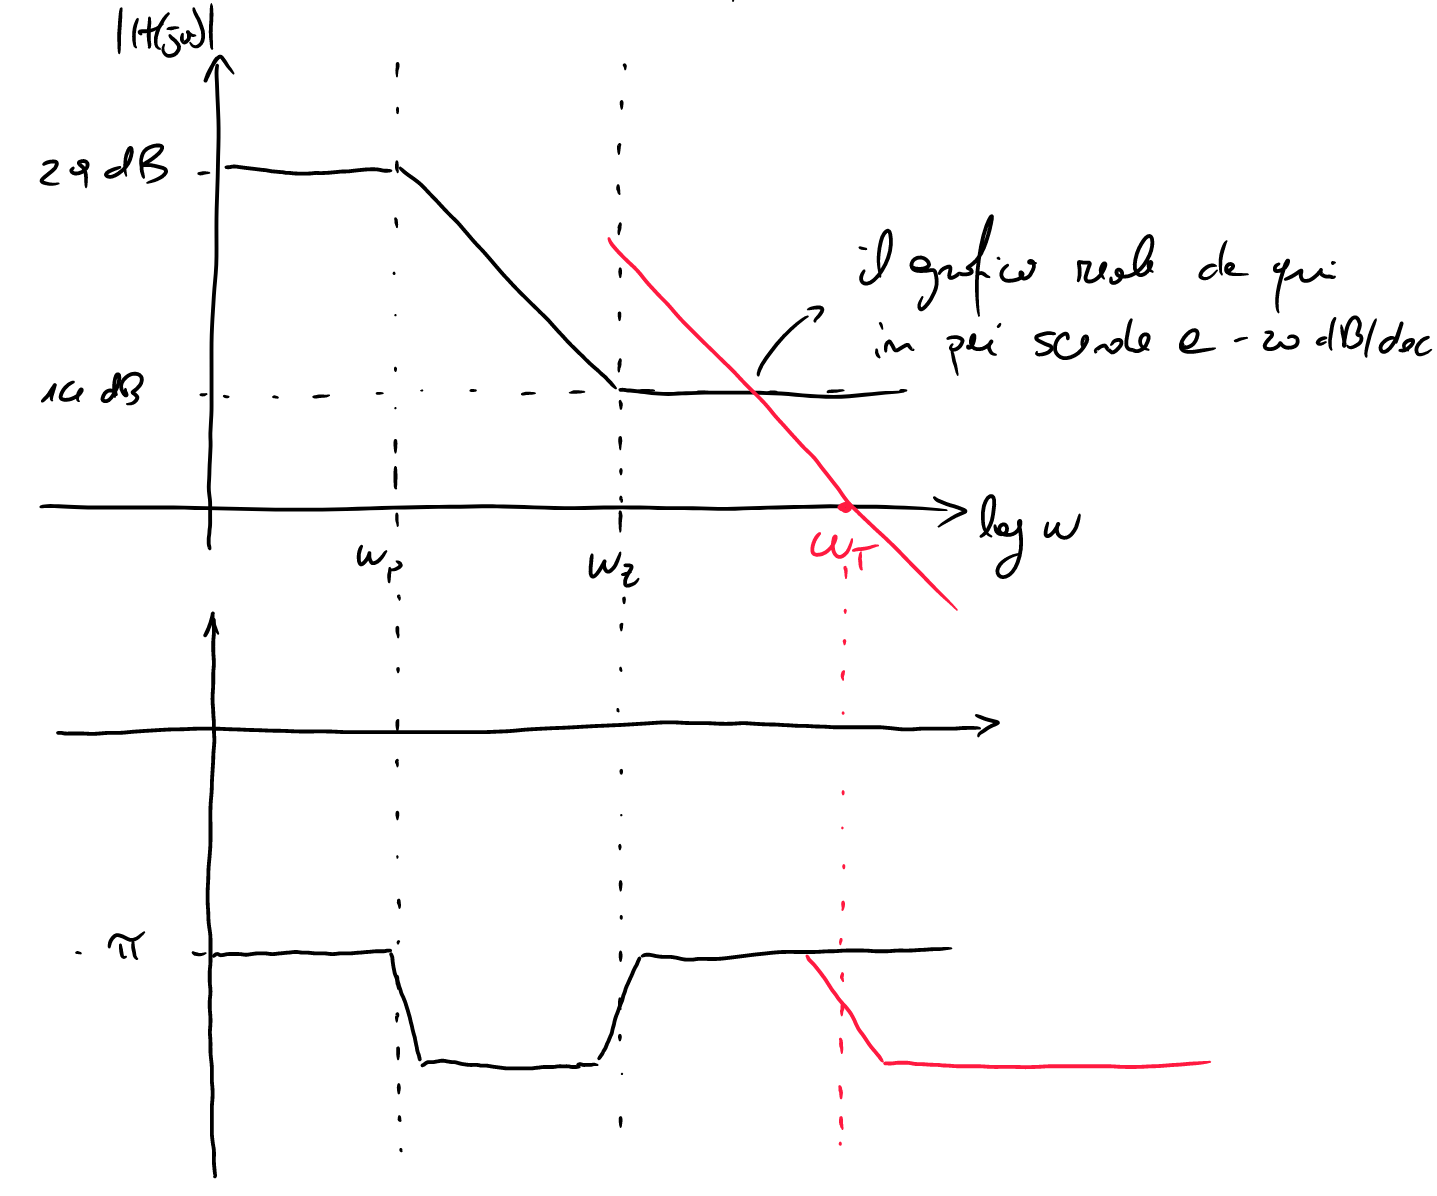 |H(jω)|
29 dB
il grafico reale da qui
in poi scende a -20 dB/dec
14 dB
log ω
ω_T
ω_p
ω_z
- π